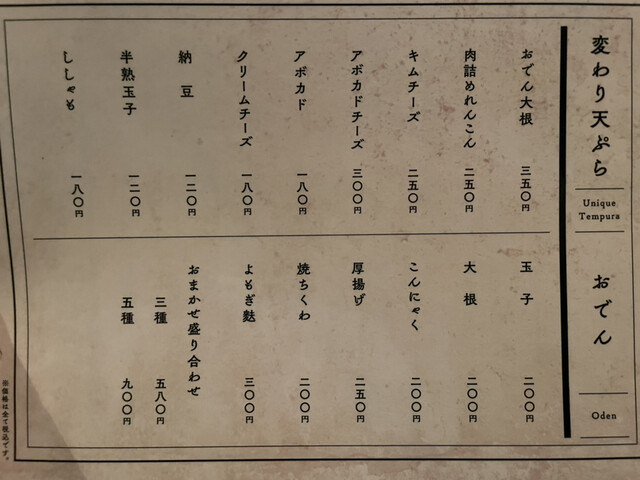 変わり天ぷら
Unique
Tempura
おでん大根 三五〇円
肉詰めれんこん 二五〇円
キムチーズ 二五〇円
アボカドチーズ 三〇〇円
アボカド 一八〇円
クリームチーズ 一八〇円
納豆 一二〇円
半熟玉子 一二〇円
ししゃも 一八〇円
おでん
Oden
玉子 二〇〇円
大根 二〇〇円
こんにゃく 二〇〇円
厚揚げ 二五〇円
焼ちくわ 二〇〇円
よもぎ麩 三〇〇円
おまかせ盛り合わせ
三種 五八〇円
五種 九〇〇円
※価格は全て税込です。